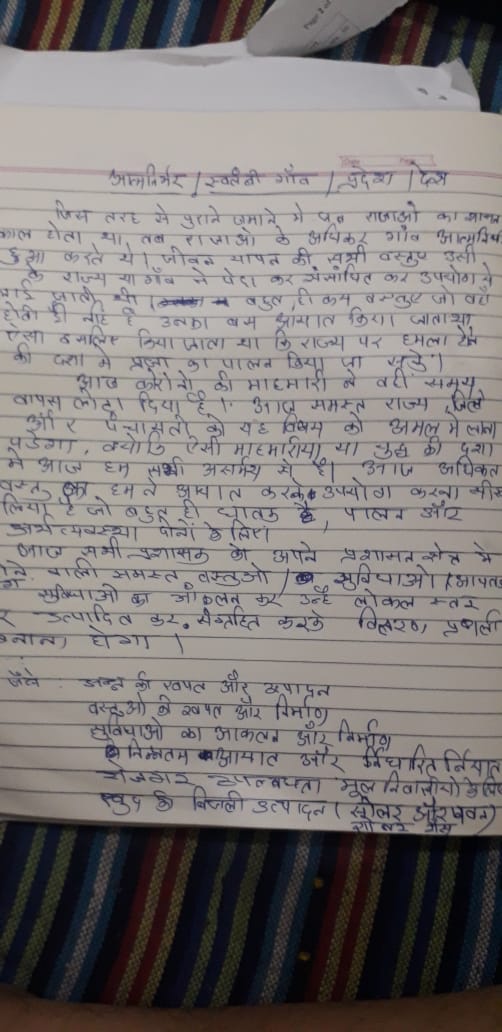 आत्मनिर्भर / स्वलंबी गाँव / प्रदेश / देश
जिस तरह से पुराने जमाने में जब राजाओं का शासन
काल होता था, तब राजाओं के अधिकर गाँव आत्मनिर्भर
हुआ करते थे। जीवन यापन की सभी वस्तुए उसी
के राज्य या गाँव में पैदा कर संसाधित कर उपयोग में
लाई जाती थी। बहुत ही कम वस्तुए जो वहाँ
होती ही नहीं है उनका बस आयात किया जाता था
ऐसा इसलिए किया जाता था कि राज्य पर हमला होने
की दशा में प्रजा का पालन किया जा सके।
आज करोनो की माहमारी ने वही समय
वापस लौटा दिया है। आज समस्त राज्य, जिले
और पंचायतो को यह विषय को अमल में लाना
पडेगा, क्योंकि ऐसी माहमारीया या युद्ध की दशा
में आज हम सभी असमय में है। आज अधिकत
वस्तु का हमने आयात करके उपयोग करना सीख
लिया है जो बहुत ही घातक है, पालन और
अर्थव्यवस्था दोनों के लिए।
आज सभी प्रशासक को अपने प्रशासन क्षेत्र में
वाली समस्त वस्तुओ / सुविधाओं /
सुविधाओं का आंकलन कर उन्हे लोकल स्तर
पर उत्पादित कर संग्रहित करके वितरण प्रणाली
बनाना होगा।
जैसे अन्न की खपत और उत्पादन
वस्तुओ की खपत और निर्माण
सुविधाओ का आकलन और निर्माण
निम्नतम आयात और निर्धारित निर्यात
रोजगार उपलब्धता मूल निवासीयो के लिए
खुद की बिजली उत्पादन (सोलर और पवन)